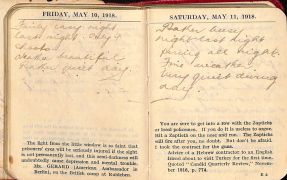 FRIDAY, MAY 10, 1918.
Fairly easy night
last night. Only 4
shoots.
beautiful
quiet day.
The light from the little window is so faint that
prisoners' eyes will be seriously injured if the sight
is not permanently lost, and this semi-darkness will
undoubtedly cause depression and mental trouble.
Mr. GERARD (American Ambassador in
Berlin), on the British camp at
SATURDAY, MAY 11, 1918.
busy
night last night
during all night.
Fine weather
Very quiet during
day.
You are sure to get into a row with the Zaptiehs
or local policemen. If you do it is useless to argue.
Hit a Zaptieh on the nose and run. The Zaptiehs
will fire after you, no doubt. But don't be afraid.
I took the contract for the guns.
Advice of a Hebrew contractor to an English
friend about to visit Turkey for the first time.
Quoted "Cavalry Quarterly Review," Novem-
ber 1916, p. 774.